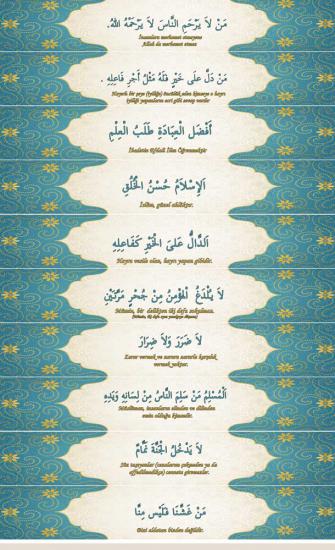 مَنْ لاَ يَرْحَمِ النَّاسَ لاَ يَرْحَمْهُ اللهُ.
İnsanlara merhamet etmeyene
Allah da merhamet etmez
مَنْ دَلَّ عَلَى خَيْرٍ فَلَهُ مِثْلُ أَجْرِ فَاعِلِهِ .
Hayırlı bir şeye (iyiliğe) öncülük eden kimseye o hayrı
iyiliği yapanların ecri gibi sevap vardır
أَفْضَلُ الْعِبَادَةِ طَلَبُ الْعِلْمِ
İbadetin Efdali İlim Öğrenmektir
اَلإِسْلاَمُ حُسْنُ الْخُلُقِ
İslâm, güzel ahlâktır.
اَلدَّالُّ عَلَى الْخَيْرِ كَفَاعِلِهِ
Hayra vesile olan, hayrı yapan gibidir.
لاَ يُلْدَغُ الْمُؤْمِنُ مِنْ جُحْرٍ مَرَّتَيْنِ
Mümin, bir delikten iki defa sokulmaz.
لاَ ضَرَرَ وَلاَ ضِرَارَ
Zarar vermek ve zarara zararla karşılık
vermek yoktur.
اَلْمُسْلِمُ مَنْ سَلِمَ النَّاسُ مِنْ لِسَانِهِ وَيَدِهِ
Müslüman, insanların elinden ve dilinden
emin olduğu kimsedir.
لاَ يَدْخُلُ الْجَنَّةَ نَمَّامٌ
Söz taşıyanlar (cezalarını çekmeden ya da
affedilmedikçe) cennete giremezler.
مَنْ غَشَّنَا فَلَيْسَ مِنَّا
Bizi aldatan bizden değildir.